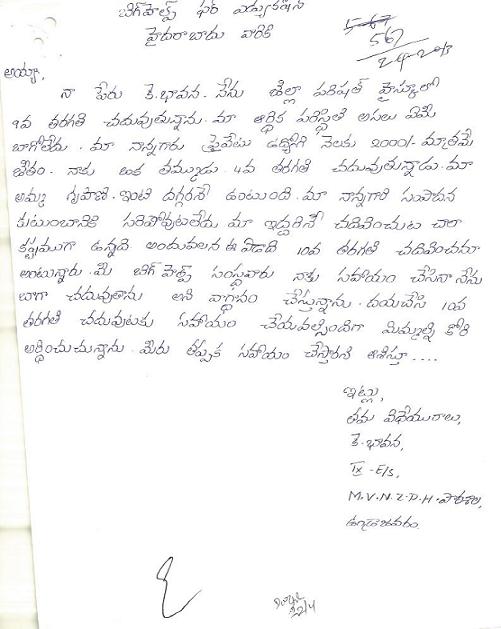 బిగ్ హెల్ప్ ఫర్ ఎడ్యుకేషన్
హైదరాబాదు వారికి
567
567
24-2013
అయ్యా,
నా పేరు కె.భావన. నేను జిల్లా పరిషత్ హైస్కూలో
9వ తరగతి చదువుతున్నాను. మా ఆర్థిక పరిస్థితి అసలు ఏమీ
బాగోలేదు. మా నాన్నగారు ప్రైవేటు ఉద్యోగి నెలకు 2000/- మాత్రమే
జీతం. నాకు ఒక తమ్ముడు. 4వ తరగతి చదువుతున్నాడు. మా
అమ్మ గృహిణి. ఇంటి దగ్గరనే ఉంటుంది. మా నాన్నగారి సంపాదన
కుటుంబానికి సరిపోవుటలేదు మా ఇద్దరినీ చదివించుట చాలా
కష్టముగా ఉన్నది. అందువలన ఈ ఏడాది 10వ తరగతి చదివించను
అంటున్నారు. మీ బిగ్ హెల్ప్ సంస్థవారు నాకు సహాయం చేసినా నేను
బాగా చదువుతాను అని వాగ్దానం చేస్తున్నాను. దయచేసి 10వ
తరగతి చదువుటకు సహాయం చేయవల్సిందిగా మిమ్మల్ని కోరి
అర్థించుచున్నాను. మీరు తప్పక సహాయం చేస్తారని ఆశిస్తూ ....
ఇట్లు,
తమ విధేయురాలు,
కె.భావన,
IX-E/S,
M.V.N.Z.P.H.పాఠశాల,
ఉండ్రాజవరం.
22/4